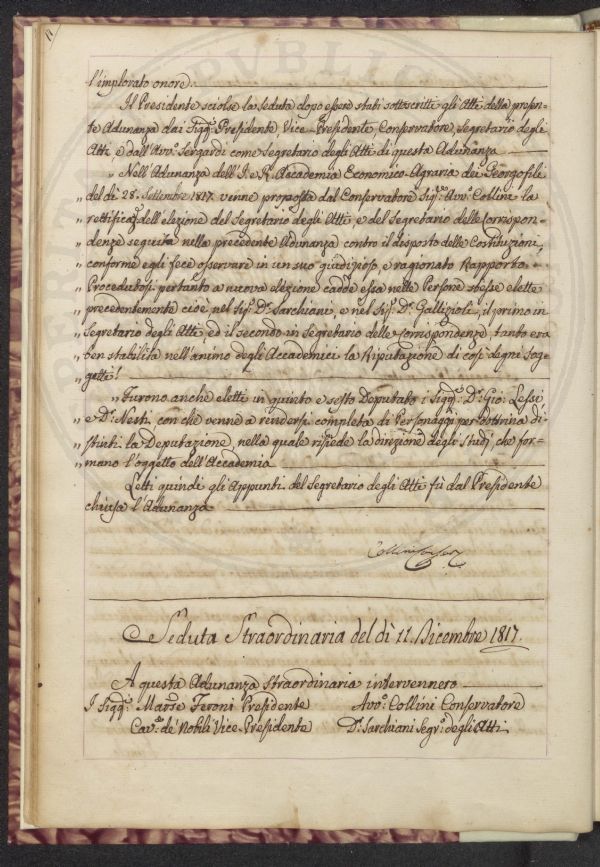 l'implorato onore.
Il Presidente sciolse la seduta dopo essere stati sottoscritti gli Atti della presen-
te Adunanza dai Sigg.ri Presidente, Vice-Presidente, Conservatore, Segretario degli
Atti e dall'Avv.o Sergardi come segretario degli Atti di questa Adunanza
„ Nell'Adunanza dell'I. e R. Accademia Economico-Agraria dei Georgofili
„ del dì 28. Settembre 1817. venne proposta dal Conservatore Sig.r Avv.o Collini la
„ rettificaz.e dell'elezione del Segretario degli Atti e del Segretario delle Corrispon-
„ denze seguita nella precedente Adunanza contro il disposto delle Costituzioni,
„ conforme egli fece osservare in un suo giudizioso, e ragionato Rapporto.
„ Procedutosi pertanto a nuova elezione cadde essa nelle Persone stesse elette
„ precedentemente cioè nel Sig.r D.r Sarchiani, e nel Sig.r D.r Gallizioli, il primo in
„ Segretario degli Atti, ed il secondo in Segretario delle Corrispondenze, tanto era
„ ben stabilita nell'animo degli Accademici la Riputazione di così degni Sog-
„ getti!
„ Furono anche eletti in quinto e sesto Deputato i Sigg.ri D.r Gio: Lessi
„ e D.r Nesti con che venne a rendersi completa di Personaggi per dottrina di-
„ stinti la Deputazione, nella quale risiede la direzione degli Studj che for-
„ mano l'oggetto dell'Accademia
Letti quindi gli Appunti del Segretario degli Atti fù dal Presidente
chiusa l'Adunanza
Collini
Seduta Straordinaria del dì 11. Dicembre 1817.
A questa Adunanza straordinaria intervennero
I Sigg.ri March.se Feroni Presidente Avv.o Collini Conservatore
Cav.re de' Nobili Vice-Presidente D.r Sarchiani Segr.o degli Atti